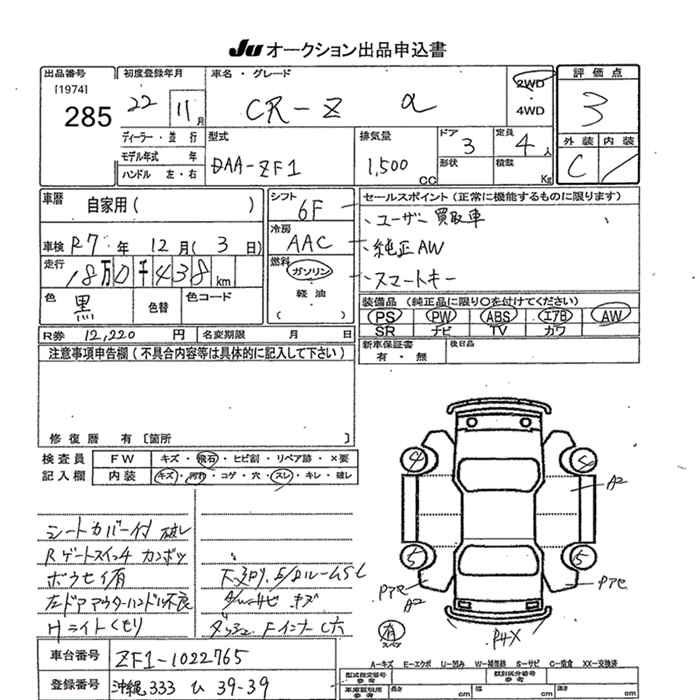 Ju オークション出品申込書
出品番号 初度登録年月 車名・グレード 2WD 評価点
[1974] 285 22 11月 CR-Z α ・ 4WD 3
ディーラー・並行 型式 排気量 ドア 定員 外装 内装
モデル年式 年 DAA-ZF1 1,500 3 4人 C /
ハンドル 左・右 cc 形状 積載 Kg
車歴 自家用( ) シフト 6F セールスポイント(正常に機能するものに限ります)
、ユーザー買取車
車検 R7年 12月(3日) 冷房 AAC 、純正AW
走行 18万0千438km 燃料 ガソリン 、スマートキー
・軽油
色 黒 色替 色コード ( ) 装備品(純正品に限り○を付けてください)
PS PW ABS エアB AW
R券 12,220円 名変期限 月 日 SR ナビ TV カワ
注意事項申告欄(不具合内容等は具体的に記入して下さい) 新車保証書 有・無 後日品
修復歴 有 [箇所 ]
検査員 FW キズ・飛石・ヒビ割・リペア跡・×要
記入欄 内装 キズ・汚れ・コゲ・穴・スレ・キレ・破レ
シートカバー付 破レ
Rゲートスイッチ カンボツ
ボウセイ有
左ドアアウターハンドル不良
Hライトくもり
4
5
A2
5
5
Pアセ
A2
Pアセ
有
スペア
車台番号 ZF1-1022765
登録番号 沖縄 333 ひ 39-39
A-キズ E-エクボ U-凹み W-補修跡 S-サビ C-腐食 XX-交換済
型式指定番号 参考 類別区分番号 参考
車庫証明用 参考 長さ cm 幅 cm 高さ cm